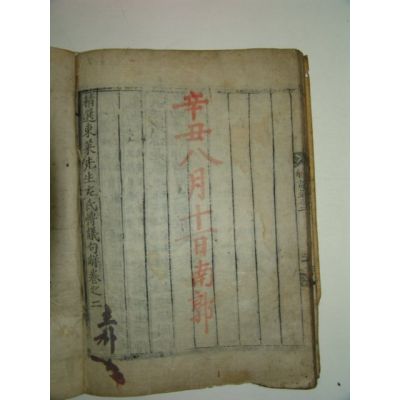 辛丑八月十一日南郭
精選東萊先生左氏博議句解卷之二